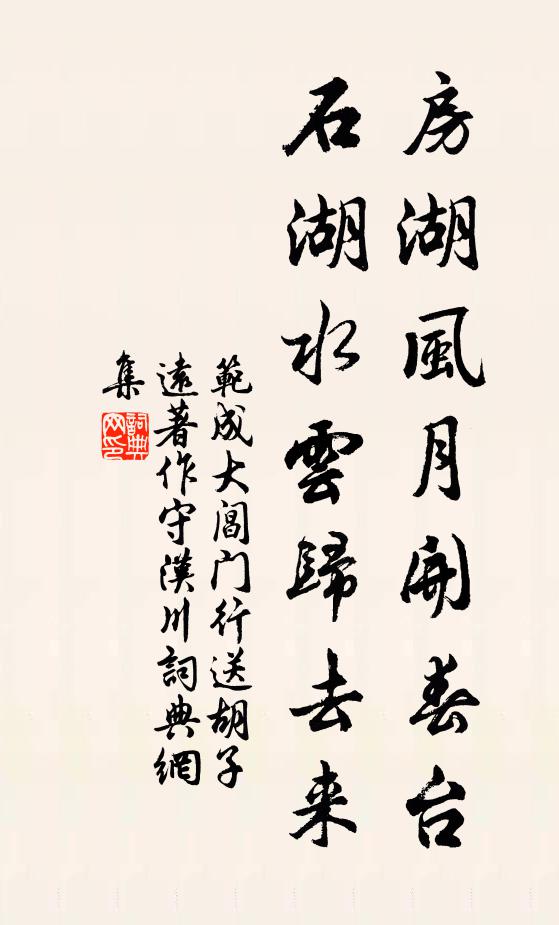 房湖風月開春台
石湖水雲歸去来
範成大閶门行送胡子
遠著作守漢川詞典網
集
詞典
网印